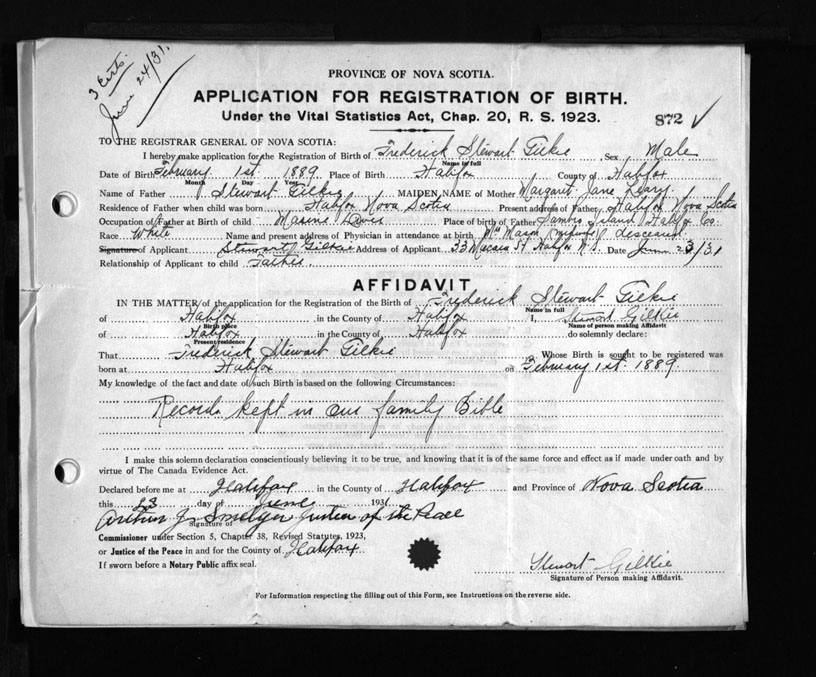 3 Certs.
June 24/31.
PROVINCE OF NOVA SCOTIA.
APPLICATION FOR REGISTRATION OF BIRTH.
Under the Vital Statistics Act, Chap. 20, R. S. 1923.
872 ✓
TO THE REGISTRAR GENERAL OF NOVA SCOTIA:
I hereby make application for the Registration of Birth of Frederick Stewart Gilkie Sex Male
Name in full
Date of Birth February 1st 1889 Place of Birth Halifax County of Halifax
Month Day Year
Name of Father Stewart Gilkie MAIDEN NAME of Mother Margaret Jane
Residence of Father when child was born Halifax Nova Scotia Present address of Father Halifax Nova Scotia
Occupation of Father at Birth of child Marine Place of birth of Father Island Halifax Co.
Race White Name and present address of Physician in attendance at birth Mrs Mason (midwife) deceased
Signature of Applicant Stewart Gilkie Address of Applicant 33 St Halifax N.S. Date June 23/31
Relationship of Applicant to child Father
AFFIDAVIT
IN THE MATTER of the application for the Registration of the Birth of Frederick Stewart Gilkie
Name in full
of Halifax in the County of Halifax I, Stewart Gilkie
Birth place Name of person making Affidavit
of Halifax in the County of Halifax do solemnly declare:
Present residence
That Frederick Stewart Gilkie Whose Birth is sought to be registered was
born at Halifax on February 1st. 1889.
My knowledge of the fact and date of such Birth is based on the following Circumstances:
Records kept in our family Bible
I make this solemn declaration conscientiously believing it to be true, and knowing that it is of the same force and effect as if made under oath and by
virtue of The Canada Evidence Act.
Declared before me at Halifax in the County of Halifax and Province of Nova Scotia
this 23 day of June 1931
Arthur J. Justice of the Peace
Signature of
Commissioner under Section 5, Chapter 38, Revised Statutes, 1923,
or Justice of the Peace in and for the County of Halifax
If sworn before a Notary Public affix seal.
Stewart Gilkie
Signature of Person making Affidavit.
For Information respecting the filling out of this Form, see Instructions on the reverse side.